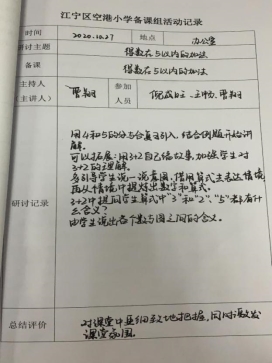 江宁区空港小学备课组活动记录
时间 2020.10.27 地点 办公室
研讨主题 得数在5以内的加法
备课 得数在5以内的加法
主持人（主讲人） 曹翔 参加人员 曹翔
研讨记录
用4和5的分与合直引入，结合例题开始讲解。
可以拓展：用3+2自己编故事，加强学生对3+2的理解。
多引导学生说一说意图，搭用算式去表达情境
再从情境中提炼出数字和算式。
3+2中提问学生算式中"3"和"2"、"5"都有什么含义？
由学生说出各个数与图之间的含义。
总结评价
对课堂中更细致地把握，同时激发
课堂氛围。